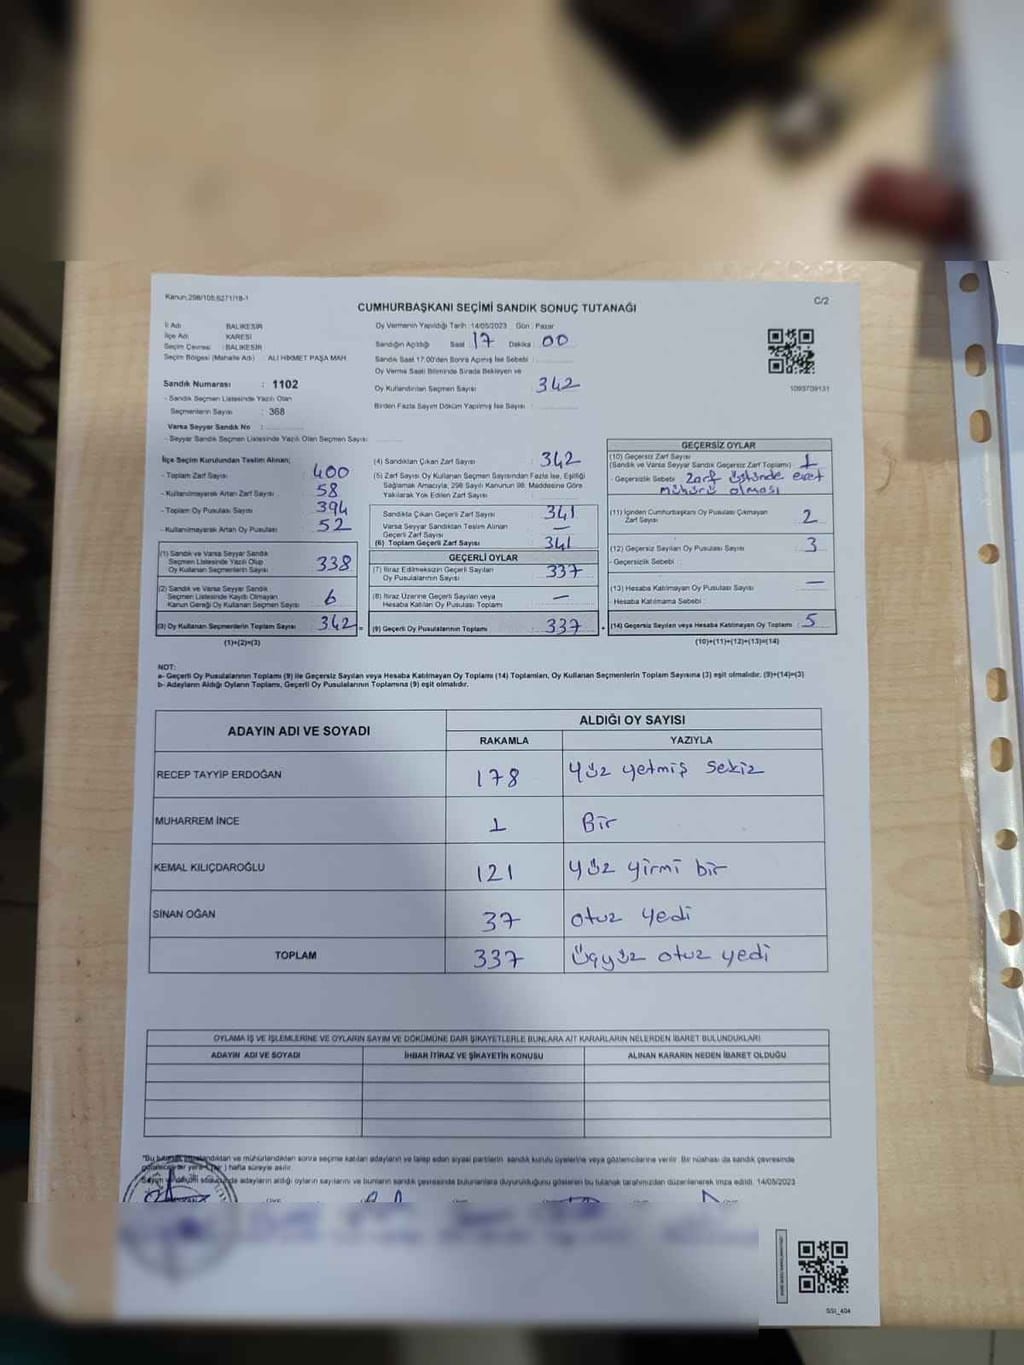 Kanun.298/105.6271/18-1
C/2
CUMHURBAŞKANI SEÇİMİ SANDIK SONUÇ TUTANAĞI
İl Adı BALIKESİR
İlçe Adı KARESİ
Seçim Çevresi : BALIKESİR
Seçim Bölgesi (Mahalle Adı) ALİ HİKMET PAŞA MAH
Sandık Numarası : 1102
- Sandık Seçmen Listesinde Yazılı Olan
Seçmenlerin Sayısı : 368
Varsa Seyyar Sandık No :
- Seyyar Sandık Seçmen Listesinde Yazılı Olan Seçmen Sayısı
Oy Vermenin Yapıldığı Tarih : 14/05/2023 Gün : Pazar
Sandığın Açıldığı Saat 17 Dakika 00
Sandık Saat 17:00'den Sonra Açılmış İse Sebebi :
Oy Verme Saati Bitiminde Sırada Bekleyen ve
Oy Kullandırılan Seçmen Sayısı : 342
Birden Fazla Sayım Döküm Yapılmış İse Sayısı :
1093709131
İlçe Seçim Kurulundan Teslim Alınan;
- Toplam Zarf Sayısı 400
- Kullanılmayarak Artan Zarf Sayısı 58
- Toplam Oy Pusulası Sayısı 394
- Kullanılmayarak Artan Oy Pusulası 52
(1) Sandık ve Varsa Seyyar Sandık
Seçmen Listesinde Yazılı Olup
Oy Kullanan Seçmenlerin Sayısı 338
(2) Sandık ve Varsa Seyyar Sandık
Seçmen Listesinde Kayıtlı Olmayan
Kanun Gereği Oy Kullanan Seçmen Sayısı 6
(3) Oy Kullanan Seçmenlerin Toplam Sayısı 342
(1)+(2)=(3)
(4) Sandıktan Çıkan Zarf Sayısı 342
(5) Zarf Sayısı Oy Kullanan Seçmen Sayısından Fazla İse, Eşitliği
Sağlamak Amacıyla, 298 Sayılı Kanunun 98. Maddesine Göre
Yakılarak Yok Edilen Zarf Sayısı
Sandıkta Çıkan Geçerli Zarf Sayısı 341
Varsa Seyyar Sandıktan Teslim Alınan
Geçerli Zarf Sayısı —
(6) Toplam Geçerli Zarf Sayısı 341
GEÇERLİ OYLAR
(7) İtiraz Edilmeksizin Geçerli Sayılan
Oy Pusulalarının Sayısı 337
(8) İtiraz Üzerine Geçerli Sayılan veya
Hesaba Katılan Oy Pusulası Toplamı —
(9) Geçerli Oy Pusulalarının Toplamı 337
GEÇERSİZ OYLAR
(10) Geçersiz Zarf Sayısı
(Sandık ve Varsa Seyyar Sandık Geçersiz Zarf Toplamı) 1
- Geçersizlik Sebebi Zarf üstünde evet
mühürü olması
(11) İçinden Cumhurbaşkanı Oy Pusulası Çıkmayan
Zarf Sayısı 2
(12) Geçersiz Sayılan Oy Pusulası Sayısı 3
- Geçersizlik Sebebi
(13) Hesaba Katılmayan Oy Pusulası Sayısı —
- Hesaba Katılmama Sebebi
(14) Geçersiz Sayılan veya Hesaba Katılmayan Oy Toplamı 5
(10)+(11)+(12)+(13)=(14)
NOT:
a- Geçerli Oy Pusulalarının Toplamı (9) ile Geçersiz Sayılan veya Hesaba Katılmayan Oy Toplamı (14) Toplamları, Oy Kullanan Seçmenlerin Toplam Sayısına (3) eşit olmalıdır. (9)+(14)=(3)
b- Adayların Aldığı Oyların Toplamı, Geçerli Oy Pusulalarının Toplamına (9) eşit olmalıdır.
ADAYIN ADI VE SOYADI
ALDIĞI OY SAYISI
RAKAMLA YAZIYLA
RECEP TAYYİP ERDOĞAN 178 Yüz yetmiş sekiz
MUHARREM İNCE 1 Bir
KEMAL KILIÇDAROĞLU 121 yüz yirmi bir
SİNAN OĞAN 37 otuz yedi
TOPLAM 337 Üçyüz otuz yedi
OYLAMA İŞ VE İŞLEMLERİNE VE OYLARIN SAYIM VE DÖKÜMÜNE DAİR ŞİKAYETLERLE BUNLARA AİT KARARLARIN NELERDEN İBARET BULUNDUKLARI
ADAYIN ADI VE SOYADI İHBAR İTİRAZ VE ŞİKAYETİN KONUSU ALINAN KARARIN NEDEN İBARET OLDUĞU
"Bu tutanak imzalandıktan ve mühürlendikten sonra seçime katılan adayların ve talep eden siyasi partilerin sandık kurulu üyelerine veya gözlemcilerine verilir. Bir nüshası da sandık çevresinde
bir yere hafta süreyle asılır.
Sayım ve döküm adayların aldığı oyların sayılarını ve bunların sandık çevresinde bulunanlara duyurulduğunu gösteren bu tutanak tarafımızdan düzenlenerek imza edildi. 14/05/2023
SSI_404